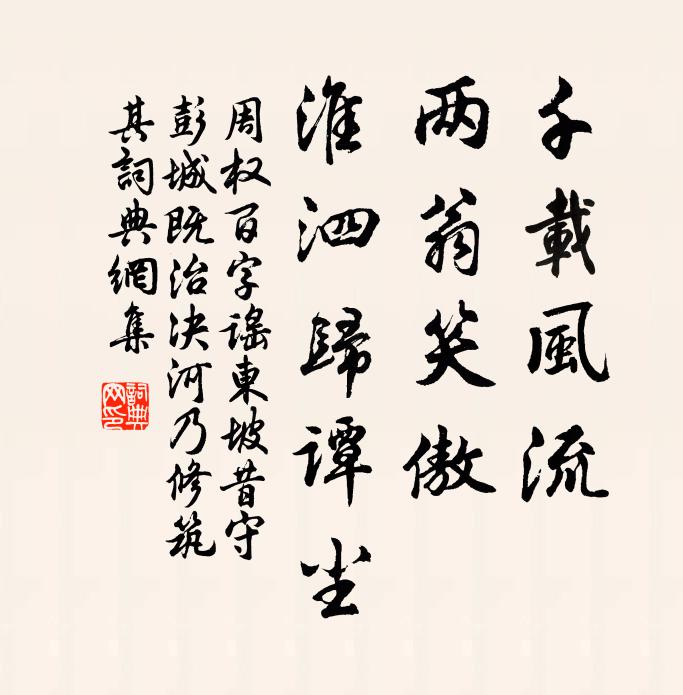 千載風流
两翁笑傲
淮泗歸谭尘
周权百字謠東坡昔守
彭城既治决河乃修筑
其詞典網集
詞典網印